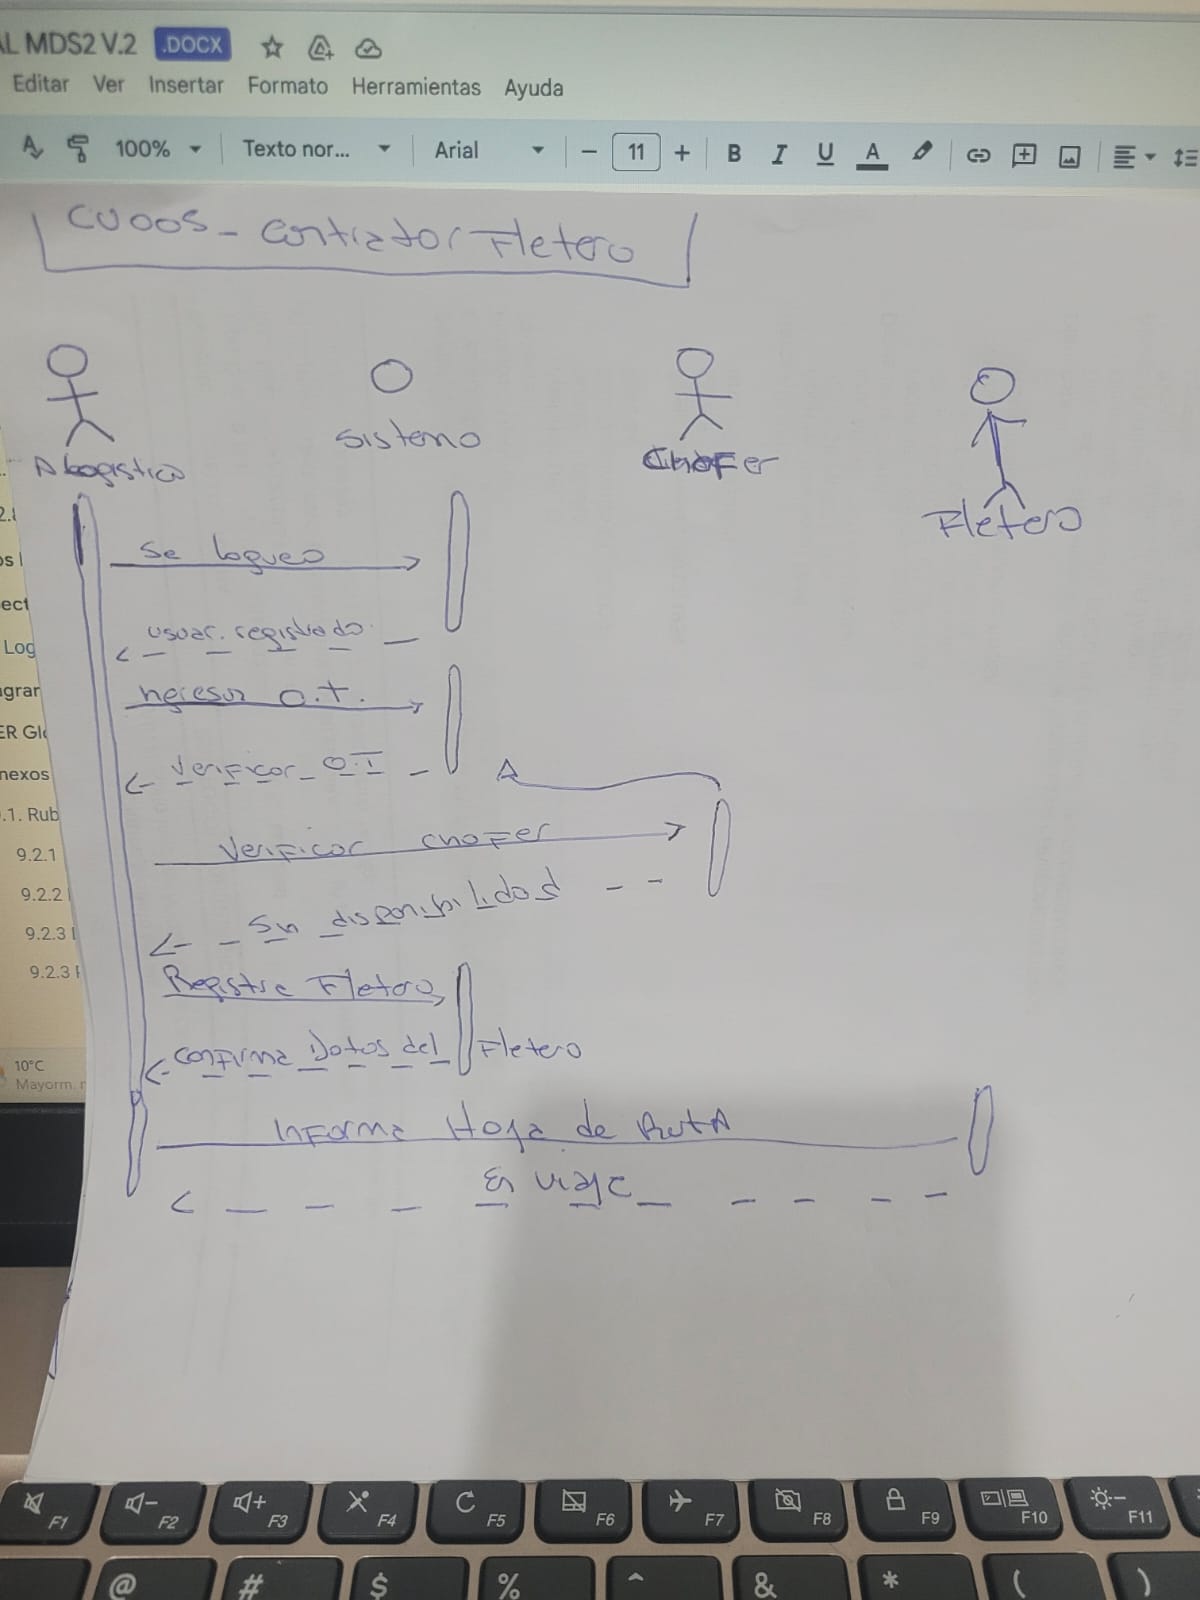 AL MDS2 V.2 .DOCX
Editar Ver Insertar Formato Herramientas Ayuda
100% Texto nor... Arial − 11 + B I U A
CU005 - Contratar Fletero
A Logistica
Sistema
Chofer
Fletero
Se loguea
usuar. registrado
Ingresar O.T.
Verificar O.T
A
Verificar chofer
Sin disponibilidad
Registra Fletero
Confirma Datos del Fletero
Informa Hoja de RutA
En viaje
2.8
os l
ect
Log
gran
ER Glo
nexos
.1. Rub
9.2.1
9.2.2
9.2.3
9.2.3
10°C
Mayorm. n
F1 F2 F3 F4 F5 F6 F7 F8 F9 F10 F11
@ # $ % ^ & * ( )